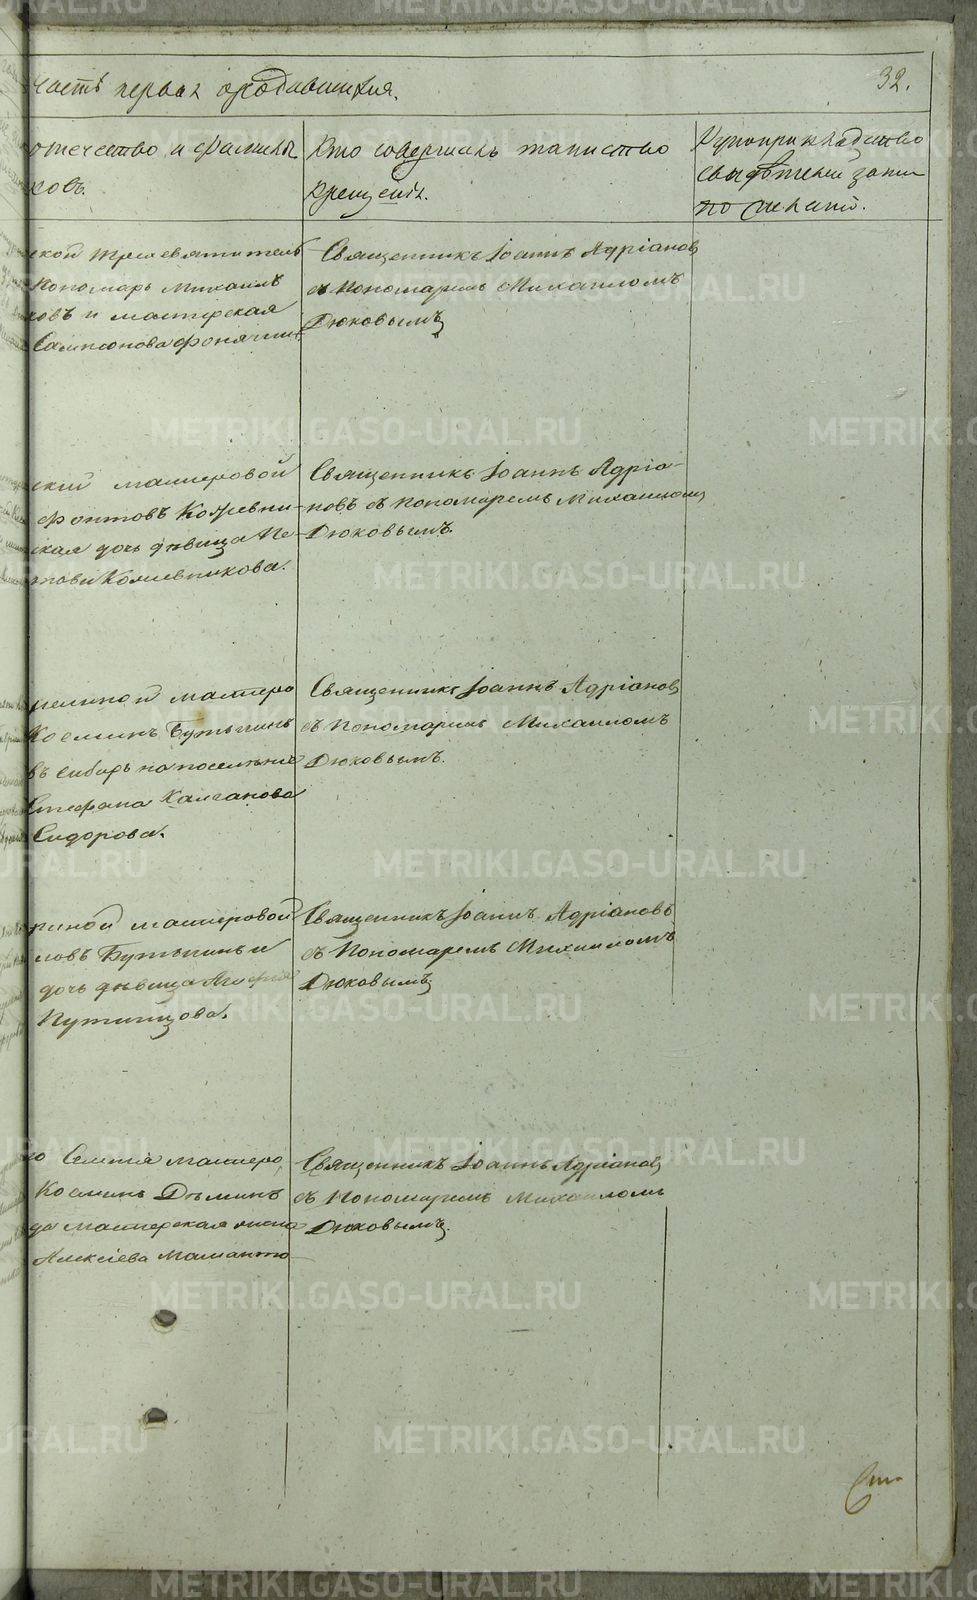 Часть первая о родившихся.
32.
отечество, и фамилія
ковъ.
Кто совершалъ таинство
крещенія.
Рукоприкладство
свидѣтелей запи
по желанію.
ской трехсвятитель
Пономарь Михаилъ
ковъ и мастерская
Сампсонова
Священникъ Іоаннъ Адріановъ
съ Пономаремъ Михаиломъ
Дюковымъ
ский мастеровой
Кожевни-
ская дочь дѣвица Пе-
Кожевникова.
Священникъ Іоаннъ Адріа-
новъ съ Пономаремъ Михаиломъ
Дюковымъ.
мастеро
Косминъ Бутыгинъ
въ сибирь на поселеніе
Стефана
Сидорова.
Священникъ Іоаннъ Адріановъ
съ Пономаремъ Михаиломъ
Дюковымъ.
мастеровой
ловъ Бутыгинъ и
дочь дѣвица
Путимцова.
Священникъ Іоаннъ Адріановъ
съ Пономаремъ Михаиломъ
Дюковымъ
мастеро
Косминъ Дѣминъ
да мастерская жена
Алексіева
Священникъ Іоаннъ Адріановъ
съ Пономаремъ Михаиломъ
Дюковымъ.
METRIKI.GASO-URAL.RU